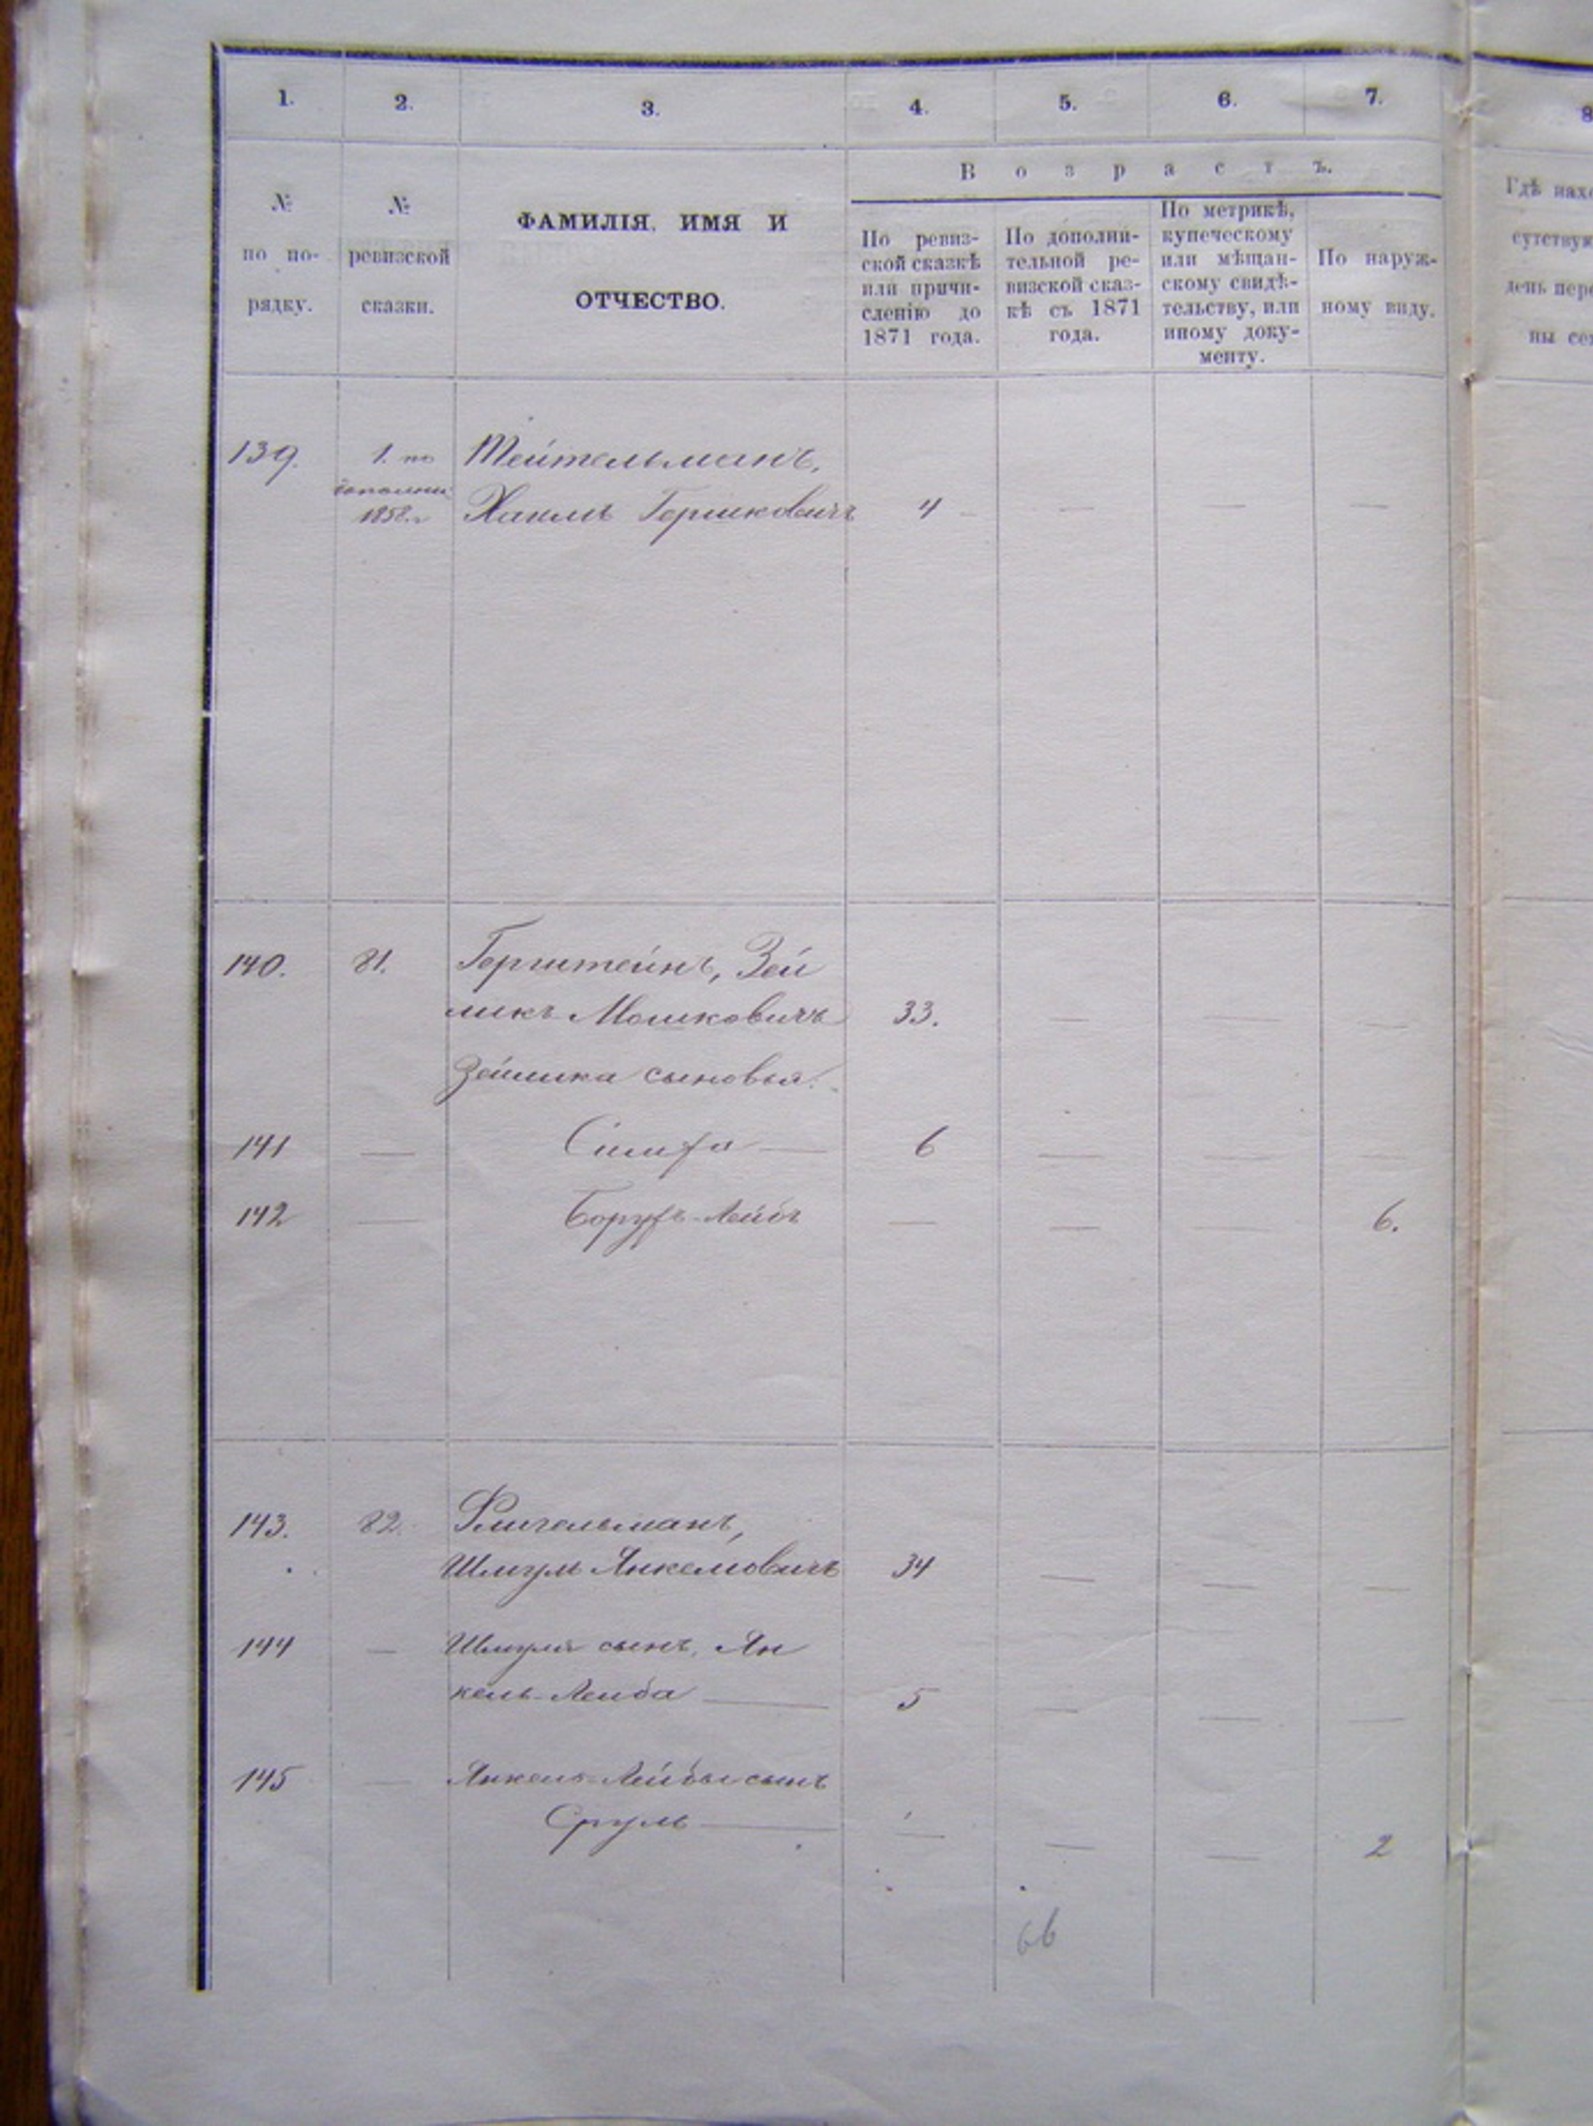 1. 2. 3. 4. 5. 6. 7. 8
В о з р а с т ъ.
№ по по-рядку.
№ ревизской сказки.
ФАМИЛІЯ, ИМЯ И
ОТЧЕСТВО.
По ревиз-
ской сказкѣ
или причи-
сленію до
1871 года.
По дополни-
тельной ре-
визской сказ-
кѣ съ 1871
года.
По метрикѣ,
купеческому
или мѣщан-
скому свидѣ-
тельству, или
иному доку-
менту.
По наруж-
ному виду.
Гдѣ нахо
сутствую
день пере
ны сем
139. 1. по Тейтельманъ,
дополни.
1858. г Хаимъ Гершковичъ 4 — — — —
140. 81. Герштейнъ, Зей
ликъ Мошковичъ 33. — — —
Зейлика сыновья:
141 — Симха — 6 — — —
142 — Борухъ-Лейбъ — — — 6.
143. 82.
Шмуль Янкелювичъ 34 — — —
144 — Шмуля сынъ, Ян
кель-Лейба — 5 — — —
145 — Янкель-Лейбы сынъ
Сруль — — — — 2
66